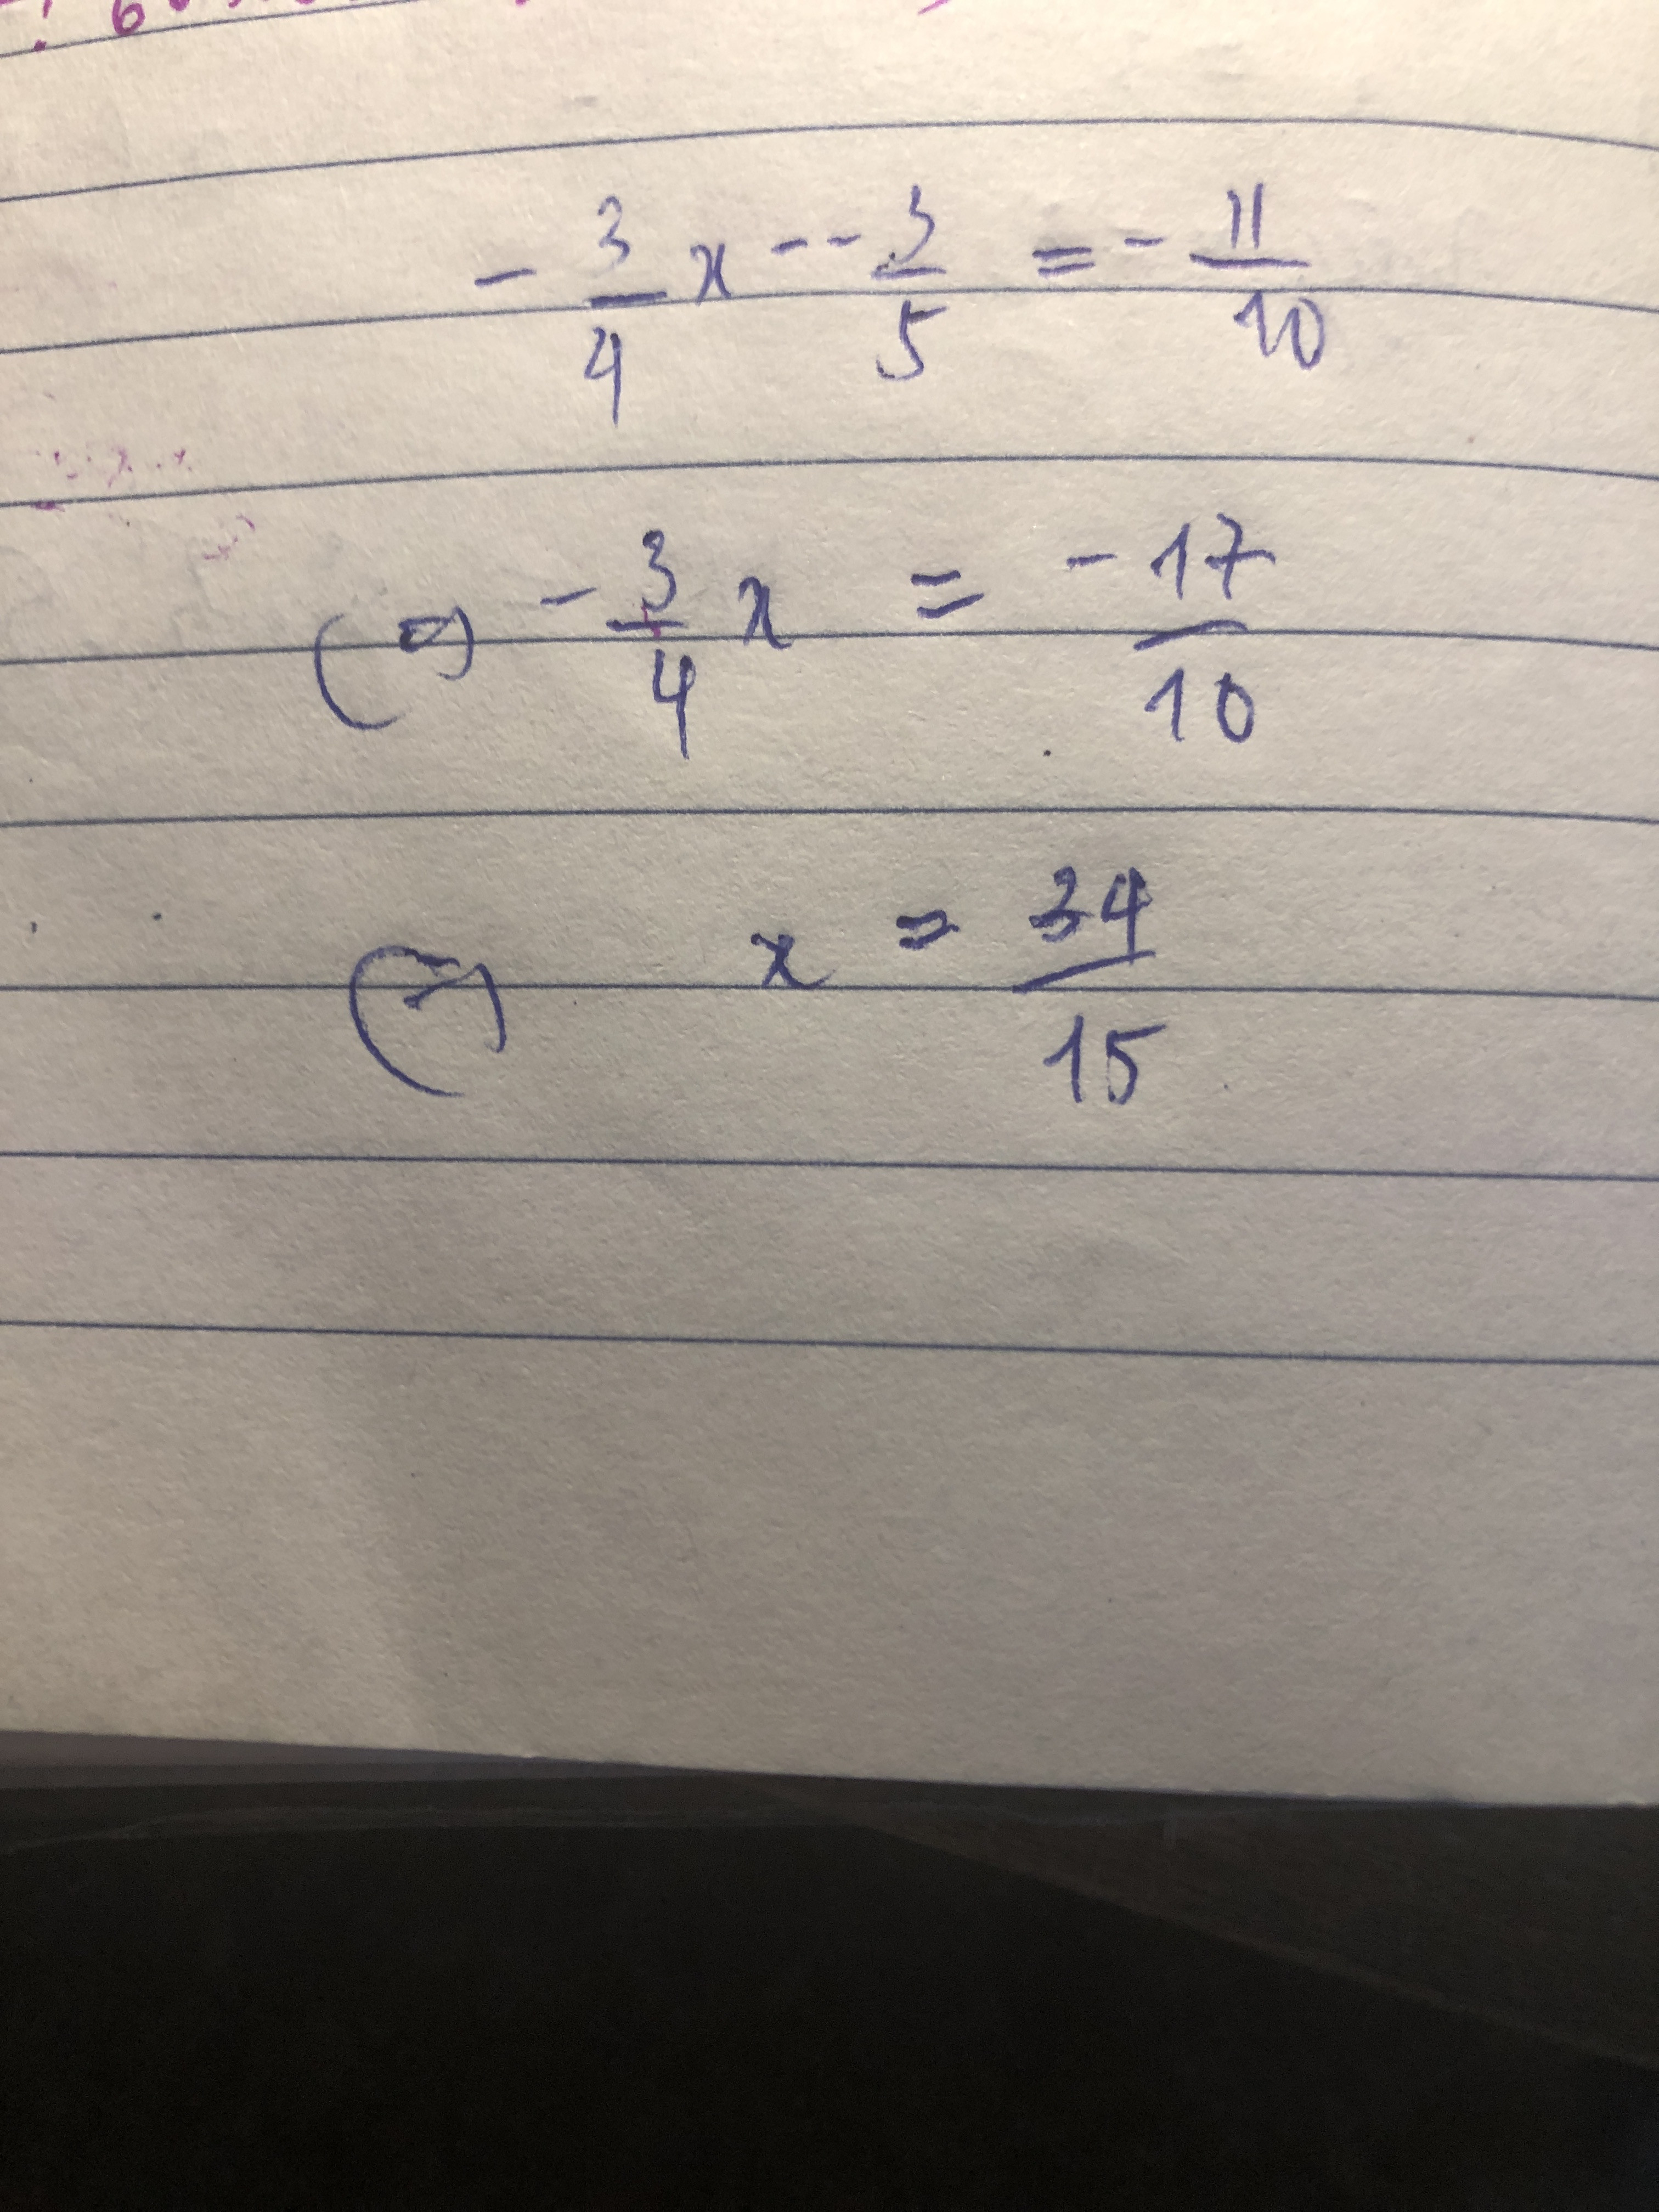 -3/4 x - -3/5 = -11/10
(=) -3/4 x = -17/10
(=) x = 34/15